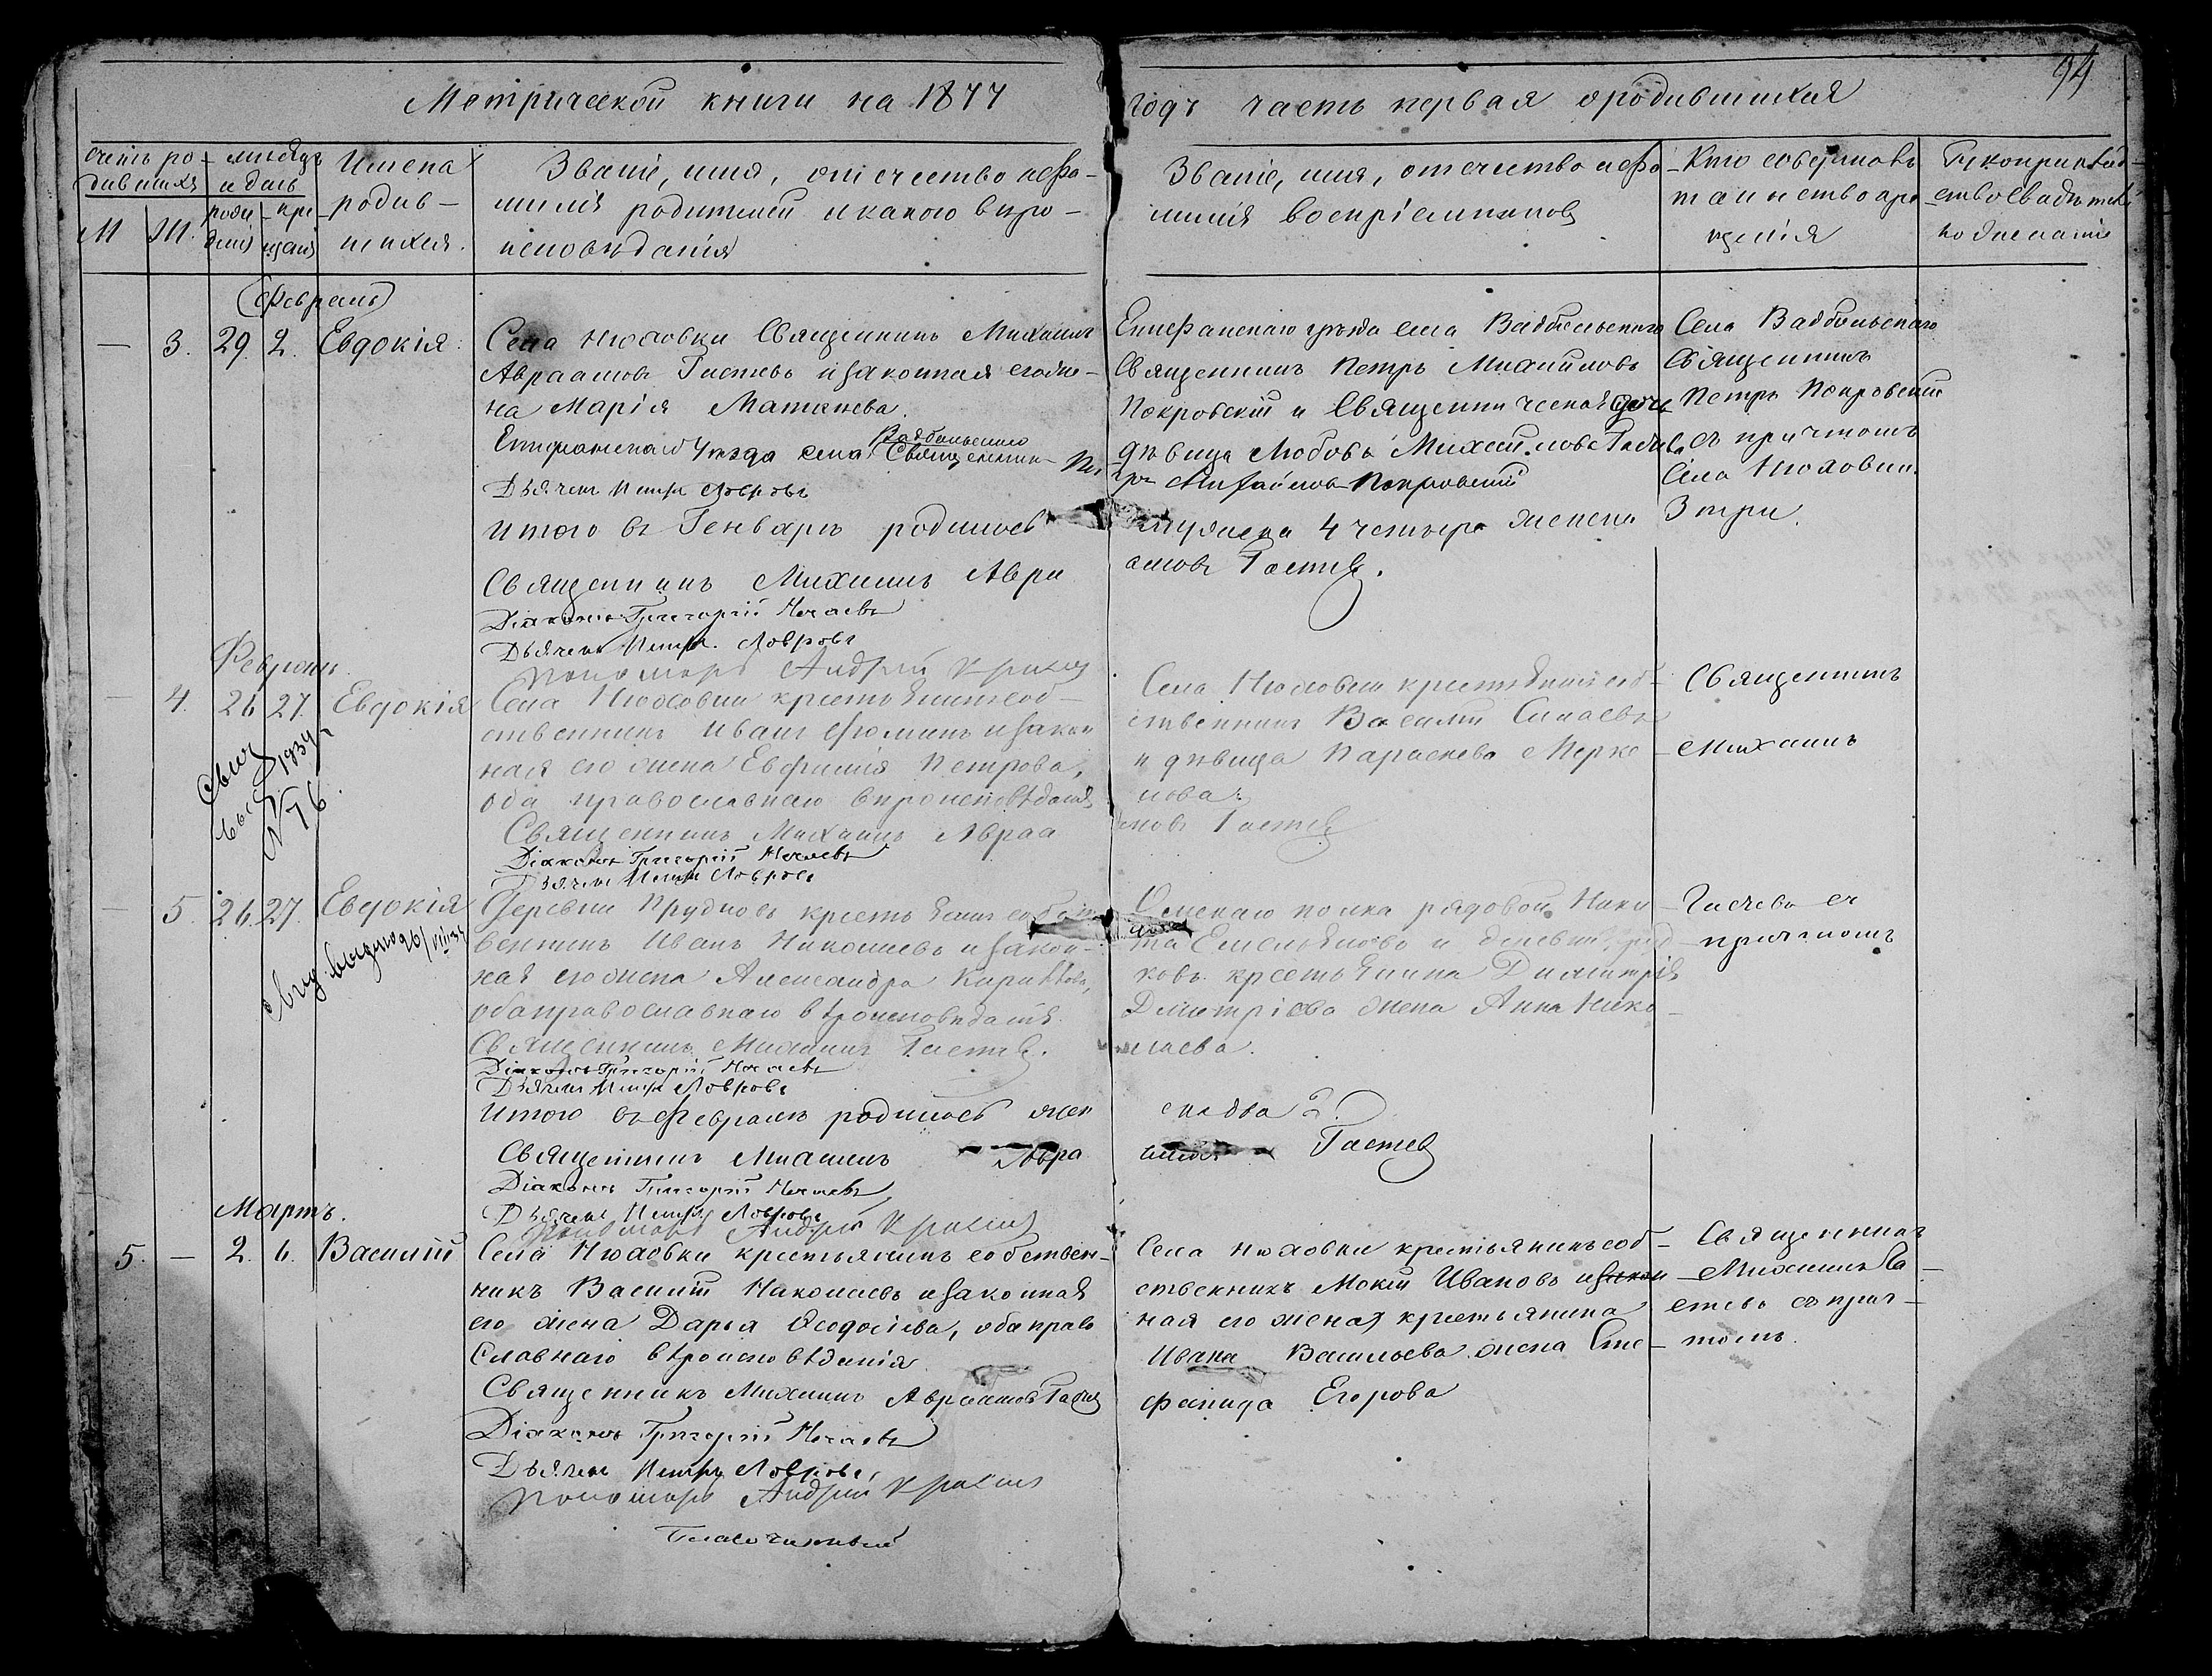 Метрической книги на 1877
годъ часть первая о родившихся
94
счетъ ро-
дившихся
М
Ж.
мѣсяцъ
и день
рожд
енія
кре
щенія
Имена
родив-
шихся.
Званіе, имя, отчество и фа-
милія родителей и какого вѣро-
исповѣданія
Званіе, имя, отчество и фа-
милія воспріемниковъ
Кто совершалъ
таинство кре
щенія
Рукоприклад-
ство свидѣтел
по
Февраль
— 3. 29. 2. Евдокія.
Села Нюховки Священникъ Михаилъ
Авраамовъ Гастевъ и законная его же-
на Марія Матвѣева.
Епифанскаго Уѣзда села Вадбольскаго Священник Пе
Дьячекъ Петръ Лавровъ
Итого въ Генварѣ родилось
Священникъ Михаилъ Авра
Діаконъ Григорій Нечаевъ
Дьячекъ Петръ Лавровъ
Пономарь Андрей
Епифанскаго уѣзда села Вадбольскаго
Священникъ Петръ Михайловъ
Покровскій и Священническая дочь
дѣвица Любовь Михайлова
тръ Михайловъ Покровскій
мужеска 4 четыре женска
амовъ Гастев.
Села Вадбольскаго
Священникъ
Петръ Покровскій
съ причтомъ
Села Нюховки.
3 три.
Февраль.
— 4. 26 27. Евдокія
Свид
1934 г
N 76.
Села Нюховки крестьянинъ соб-
ственникъ Иванъ Ѳоминъ и закон
ная его жена Евфимія Петрова,
оба православнаго вѣроисповѣданія
Священникъ Михаилъ Авраа
Діаконъ Григорій Нечаевъ
Дьячекъ Петръ Лавров
Села Нюховки крестьянинъ соб-
ственникъ Василій
и дѣвица Параскева Мерке
лова.
мовъ Гастев
Священникъ
Михаилъ
— 5. 26. 27. Евдокія
Свид. выдано 26/VIII 34
Деревни Прудковъ крестьянинъ собст
венникъ Иванъ Николаевъ и закон-
ная его жена Александра
оба православнаго вѣроисповѣданія.
Священникъ Михаилъ Гастев.
Діаконъ Григорій Нечаевъ
Дьячекъ Петръ Лавровъ
Итого въ Февралѣ родилось жен
Священникъ Михаилъ Авра
Діаконъ Григорій Нечаевъ
Дьячекъ Петръ Лавровъ
Пономарь Андрей
полка рядовой Ники
та Емельяновъ и деревни Пруд
ковъ крестьянина Димитрія
Дмитріева жена Анна Нико-
лаева.
ска два 2.
Гастев
Гастевъ съ
причтомъ
Мартъ.
5. — 2. 6. Василій
Села Нюховки крестьянинъ собствен-
никъ Василій Николаевъ и законная
его жена Дарья Ѳеодосіева, оба право
славнаго вѣроисповѣданія
Священникъ Михаилъ Авраамовъ Гастев
Діаконъ Григорій Нечаевъ
Дьячекъ Петръ Лавровъ,
Пономарь Андрей
Села Нюховки крестьянинъ соб-
ственникъ Мокій Ивановъ и закон
ная его жена крестьянина
Ивана Васильева жена Сте-
фанида Егорова
Священникъ
Михаилъ Га-
стевъ съ прич-
томъ.